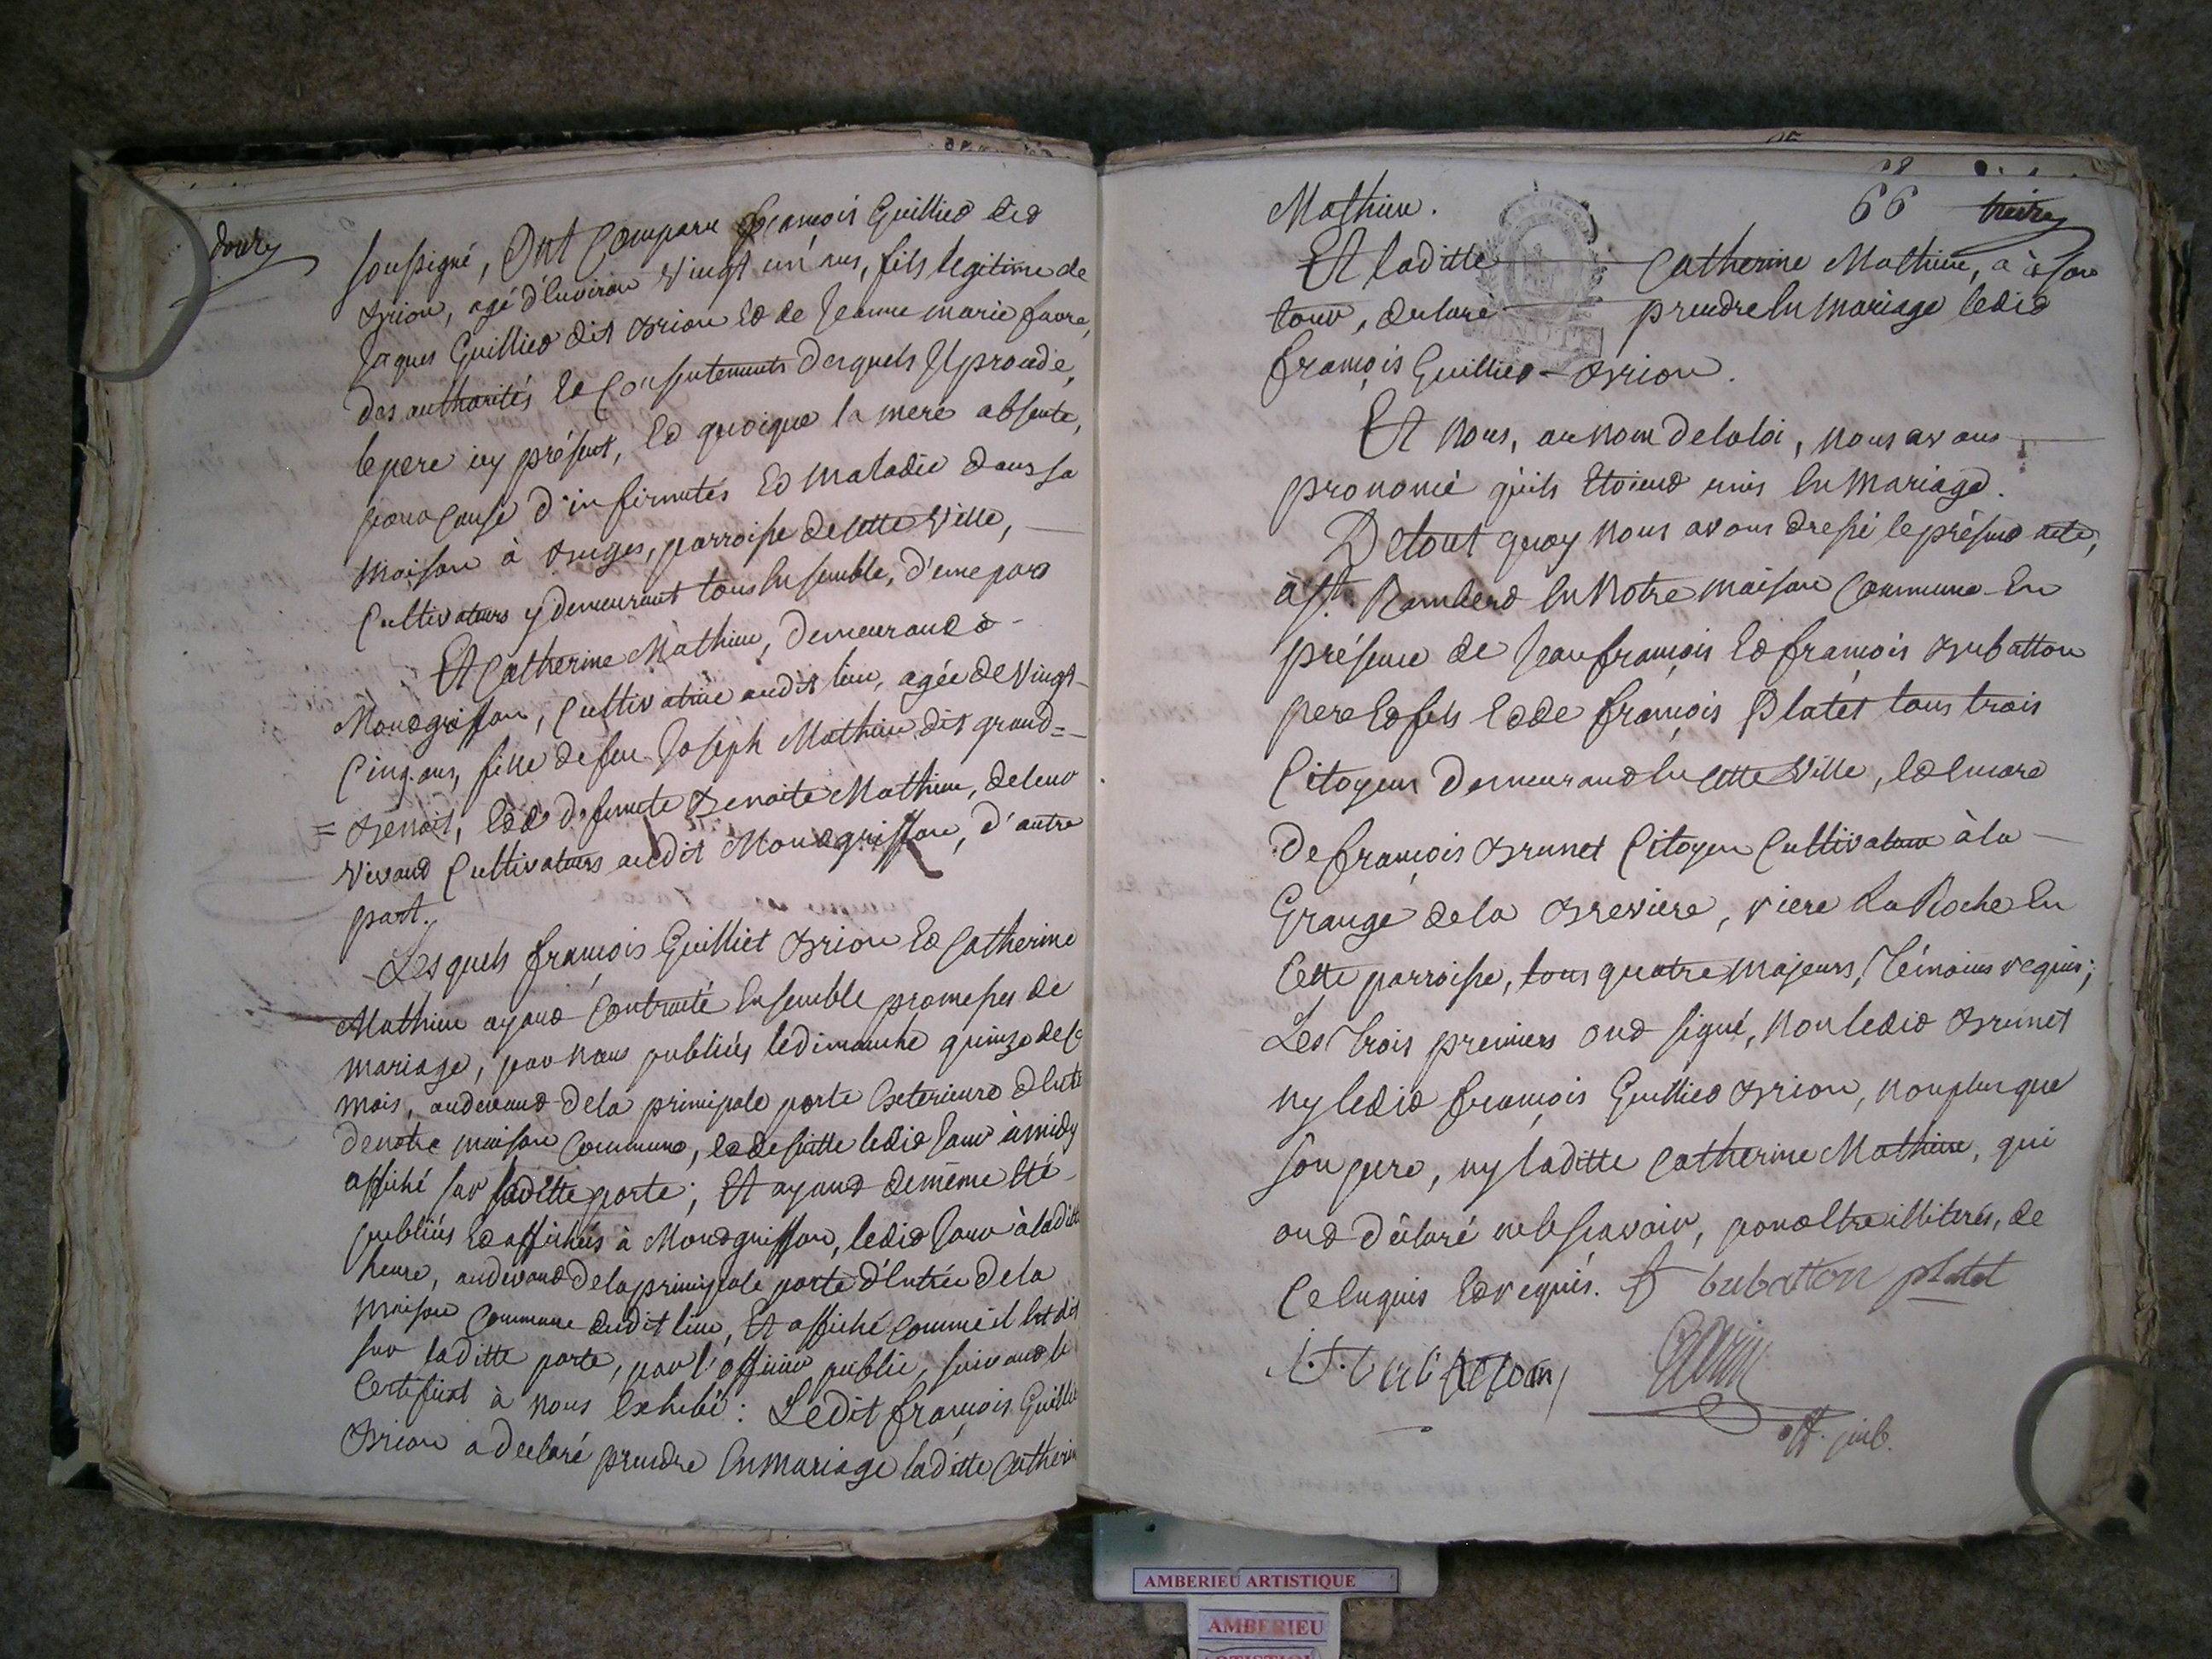 douze
soussigné, Ont Comparu françois Guillied did
Brion, agé d'Environ vingt un ans, fils legitime de
Jaques Guillied dit Brion Ed de Jeanne marie favre,
des authorités Ed Consentements desquels Il procede,
le pere icy présent, Ed quoique la mere absente,
pour Cause d'infirmités Ed maladie dans sa
maison à Bruges, parroisse de cette ville,
Cultivateurs y demeurant tous Ensemble, d'une part
Et Catherine Mathieu, demeurand à
Mondgriffon, Cultivatrice audit lieu, agée de vingt-
Cinq ans, fille de feu Joseph Mathieu dit grand=
=Benoit, Ed de defunte Benoite Mathieu, de leur
vivand Cultivateurs audit Mondgriffon, d'autre
part.
Lesquels françois Guilliet Brion Ed Catherine
Mathieu ayand Contracté Ensemble promesses de
mariage, par nous publiées le dimanche quinze de ce
mois, audevand de la principale porte Exterieure d'Entré
de notre maison Commune, Ed de suitte ledid Jour à midy
affiché sur laditte porte; Et ayand de même Eté
publiées Ed affichés à Mondgriffon, ledid Jour à laditte
heure, audevand de la principale porte d'Entrée de la
maison Commune dudit lieu, Et affiché comme il Est dit
sur laditte porte, par l'officier public, suivand le
Certificat à nous Exhibé: Ledit françois Guillie
Brion a declaré prendre En mariage laditte Catherin
66
treize
Mathieu.
Et laditte Catherine Mathieu, a à son
tour, declaré prendre En mariage ledid
françois Guillied-Brion.
Et nous, au nom de la loi, nous avons
prononcé qu'ils Etoiend unis En mariage.
De tout quoy nous avons dressé le présend acte,
à St. Ramberd En notre maison Commune En
présence de Jean françois Ed françois Bubatton
pere Ed fils Ed de françois Platet tous trois
Citoyens demeurand En cette ville, Ed Encore
de françois Brunet Citoyen Cultivateur à la
Grange de la Breviere, riere La Roche En
Cette parroisse, tous quatre majeurs, Témoins requis;
Les Trois premiers ond signé, non ledid Brunet
ny ledid françois Guillied Brion, non plus que
son pere, ny laditte Catherine Mathieu, qui
ond déclaré ne le scavoir, pour Etre illiterés, de
Ce Enquis Ed requis. f bubatton platet
off. pub.
AMBERIEU ARTISTIQUE
AMBERIEU
ARTISTIQUE